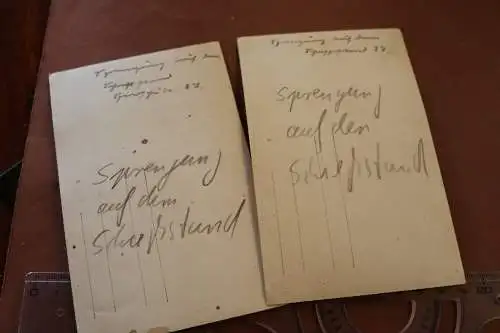 Sprengung auf dem
Schießstand
Sprengung
auf dem
Schießstand
Sprengung auf dem
Schießstand
Sprengung
auf dem
Schießstand